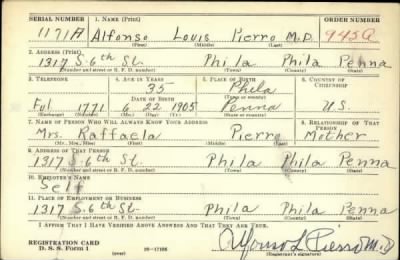 SERIAL NUMBER 1. NAME (Print) ORDER NUMBER
1171A Alfonso Louis Pierro M.D. 945Q
(First) (Middle) (Last)
2. ADDRESS (Print)
1317 S. 6th St. Phila Phila Penna
(Number and street or R. F. D. number) (Town) (County) (State)
3. TELEPHONE 4. AGE IN YEARS 5. PLACE OF BIRTH 6. COUNTRY OF CITIZENSHIP
35 Phila
DATE OF BIRTH (Town or county)
Ful 1771 6 22 1905 Penna U.S.
(Exchange) (No.) (Mo.) (Day) (Yr.) (State or country)
7. NAME OF PERSON WHO WILL ALWAYS KNOW YOUR ADDRESS 8. RELATIONSHIP OF THAT PERSON
Mrs. Raffaela Pierro Mother
(Mr., Mrs., Miss) (First) (Middle) (Last)
9. ADDRESS OF THAT PERSON
1317 S. 6th St. Phila Phila Penna
(Number and street or R. F. D. number) (Town) (County) (State)
10. EMPLOYER'S NAME
Self
11. PLACE OF EMPLOYMENT OR BUSINESS
1317 S. 6th St. Phila Phila Penna
(Number and street or R. F. D. number) (Town) (County) (State)
I AFFIRM THAT I HAVE VERIFIED ABOVE ANSWERS AND THAT THEY ARE TRUE.
REGISTRATION CARD
D. S. S. Form 1 16—17105 Alfonso L Pierro M.D.
(over) (Registrant's signature)